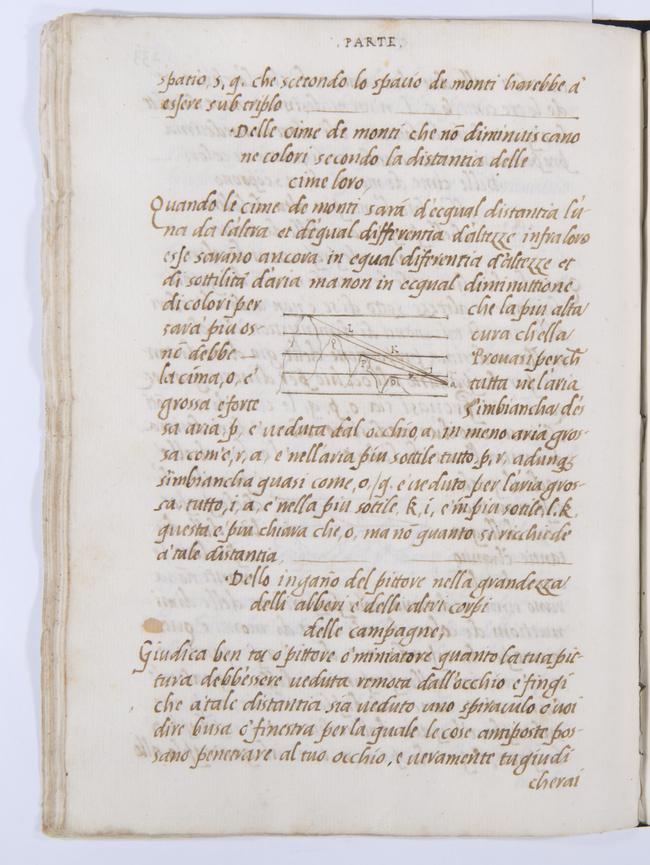 .PARTE.
spatio, s, q. che secondo lo spacio de monti harebbe a
essere subtriplo
Delle cime de monti che nō diminuiscano
ne colori secondo la distantia delle
cime loro,
Quando le cime de monti sarā d'ecqual distantia l'u-
na da l'altra et d'equal differentia d'altezze infra loro
esse sarano ancora in equal difrentia d'altezze et
di sottilità d'aria ma non in ecqual diminuttione
di colori per che la piu alta
sarà piu os cura ch'ella
nō debbe Provasi perch
la cima, o, e' tutta ne l'aria
grossa e forte s'imbiancha d'es
sa aria, p, e' veduta dal occhio, a, in meno aria gros-
sa com'e, r, a, e nell'aria piu sottile tutto, p, r, adunq3
s'imbiancha quasi come, o, q. e' veduto per l'aria gros-
sa, tutto, i, a, e' nella piu sottile, k, i, e' in piu sottile, l. k.
questa e' piu chiara che, o, ma nō quanto si richiede
a' tale distantia.
Dello ingaño del pittore nella grandezza
delli alberi e' delli altri corpi
delle campagne,
Giudica ben tu o' pittore o' miniatore quanto la tua pit-
tura debb'essere veduta remota dall'occhio e' fingi
che a' tale distantia sia veduto uno spiraculo o' voi
dire busa o' finestra per la quale le cose antiposte pos-
sano penetrare al tuo occhio, e veramente tu giudi
cherai